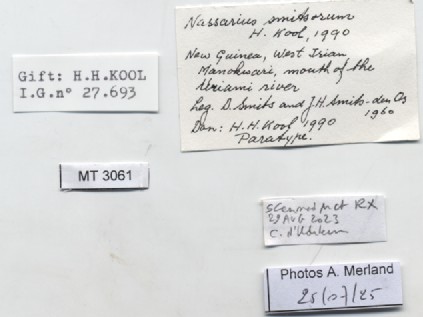 Nassarius smitsorum
H. Kool, 1990
New Guinea, West Irian
Manokwari, mouth of the
river
Leg. D. Smits and J.H. Smits-den Os
1960
Don: H.H. Kool 1990
Paratype.
Gift: H.H.KOOL
I.G.n° 27.693
MT 3061
Scanned µct RX
29 AUG 2023
Photos A. Merland